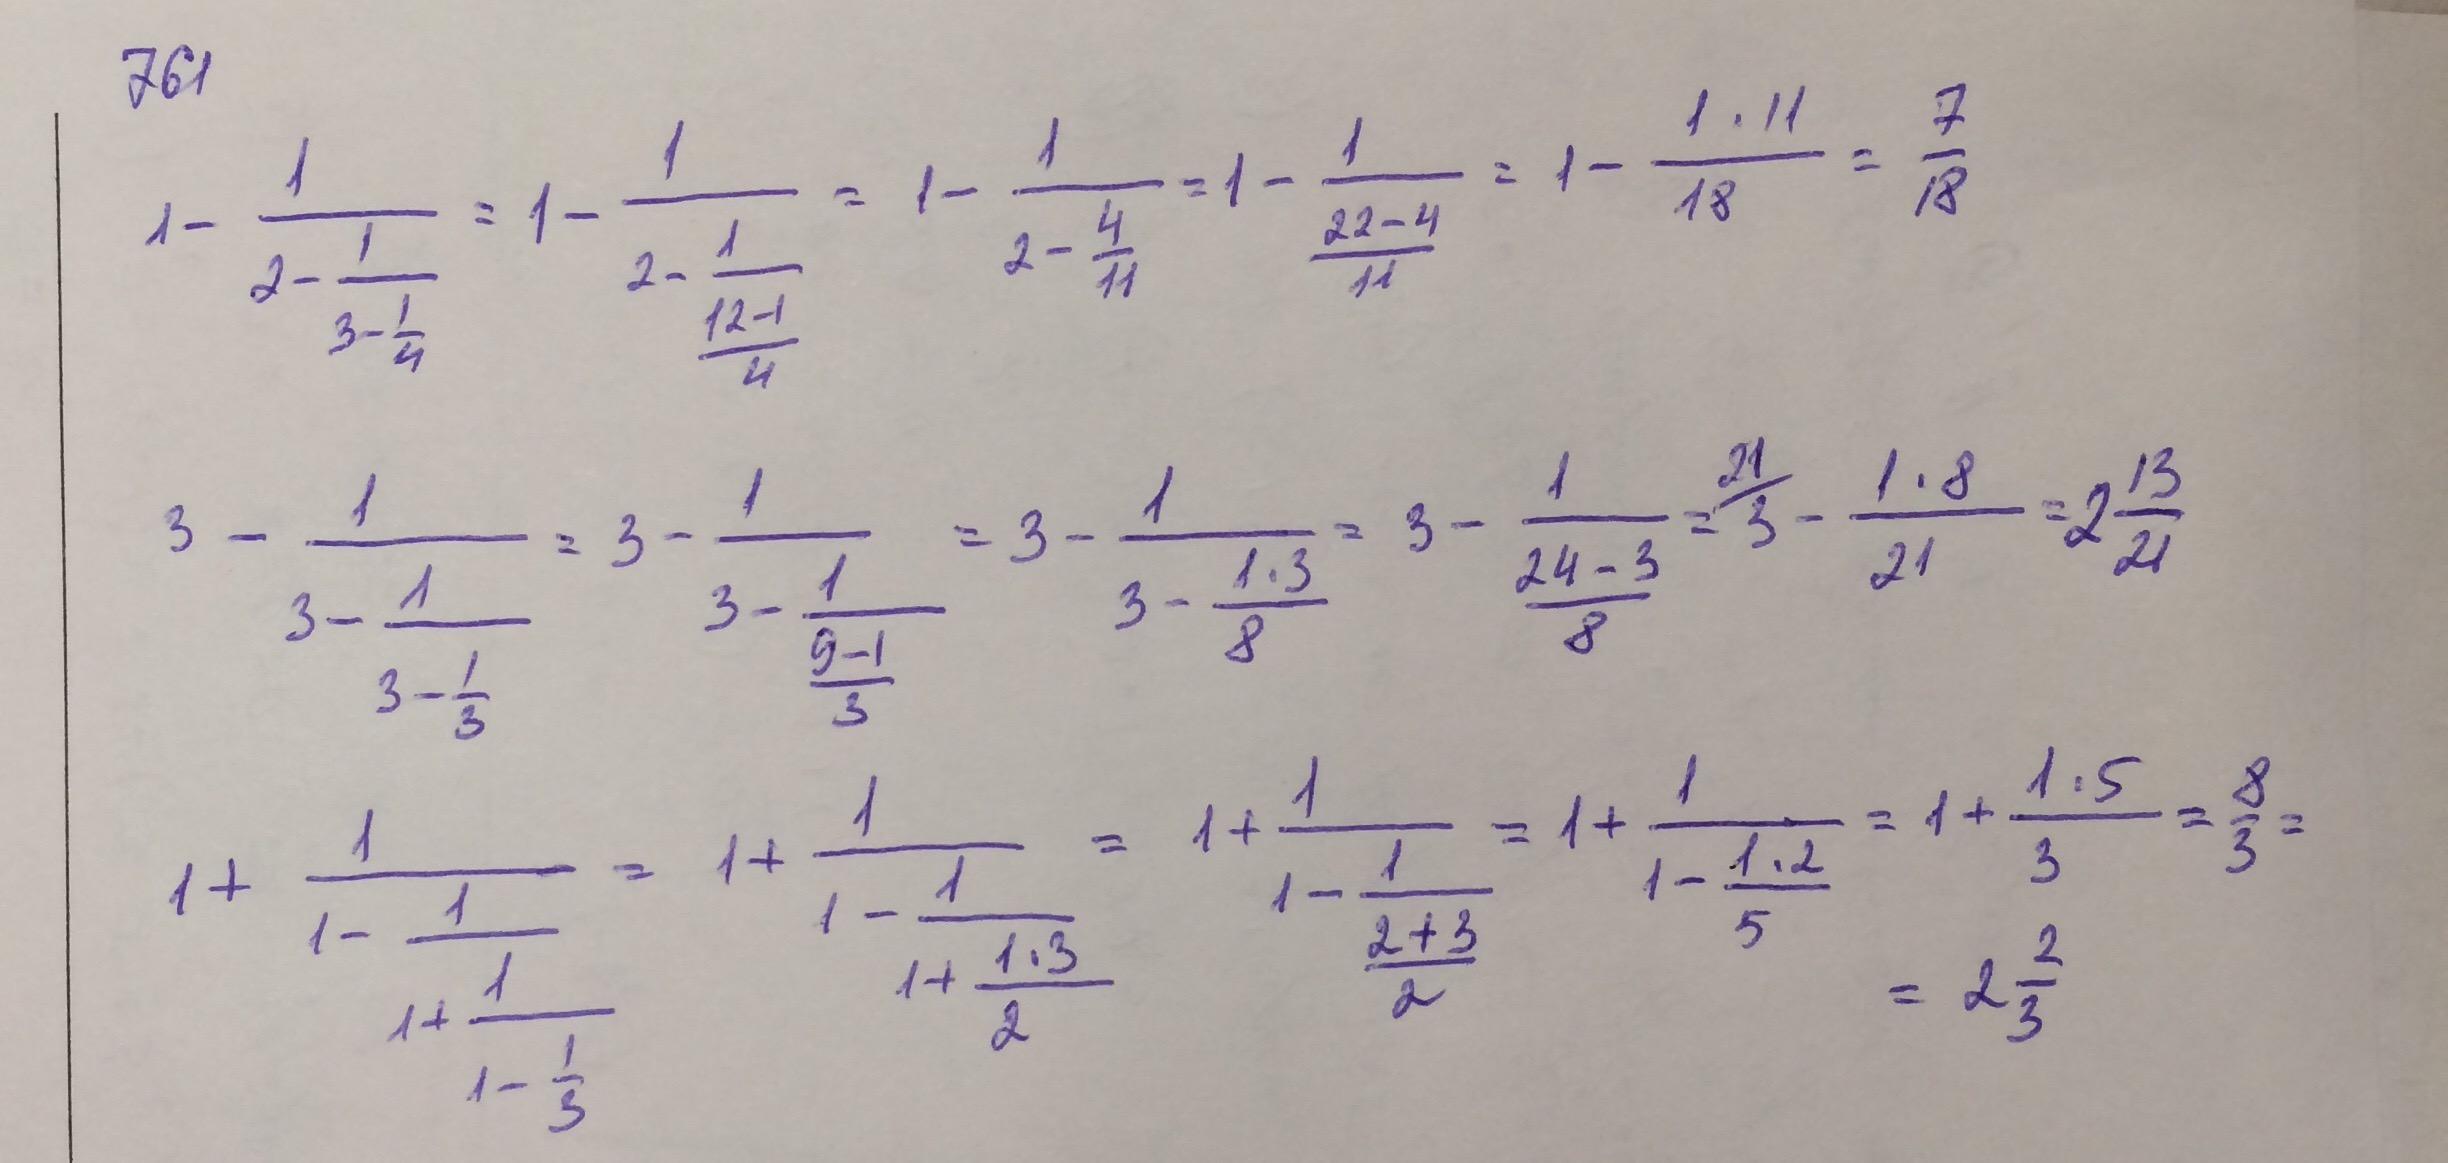 761
1 - 1/(2 - 1/(3 - 1/4)) = 1 - 1/(2 - 1/((12-1)/4)) = 1 - 1/(2 - 4/11) = 1 - 1/((22-4)/11) = 1 - (1·11)/18 = 7/18
3 - 1/(3 - 1/(3 - 1/3)) = 3 - 1/(3 - 1/((9-1)/3)) = 3 - 1/(3 - (1·3)/8) = 3 - 1/((24-3)/8) = 21/ 3 - (1·8)/21 = 2 13/21
1 + 1/(1 - 1/(1 + 1/(1 - 1/3))) = 1 + 1/(1 - 1/(1 + (1·3)/2)) = 1 + 1/(1 - 1/((2+3)/2)) = 1 + 1/(1 - (1·2)/5) = 1 + (1·5)/3 = 8/3 =
= 2 2/3